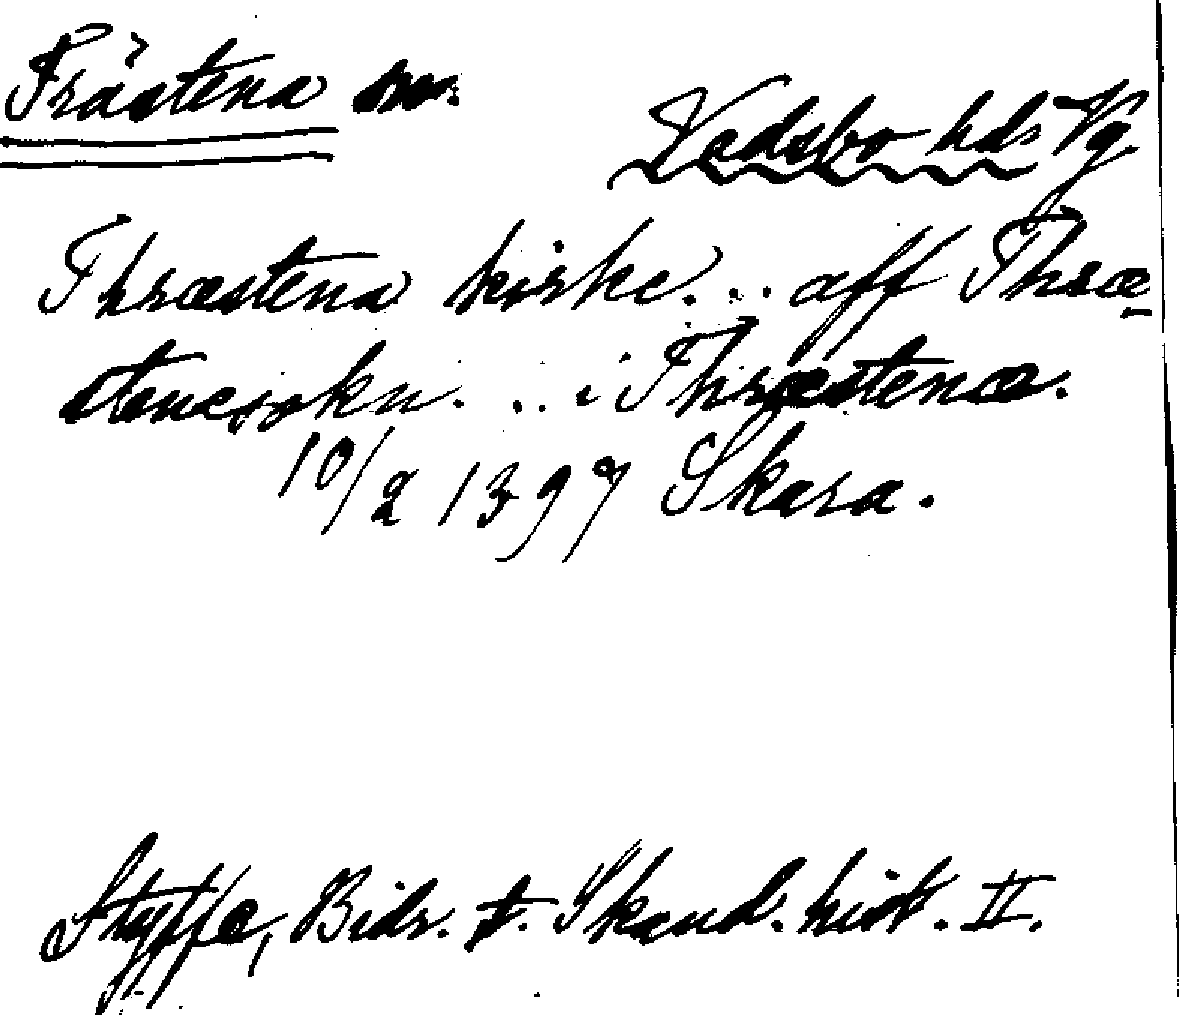 Trästena sn.
Vadsbo hds Vg
Thræstena kirke. .. aff Thræ-
stenesokn. .. i Thræstenæ.
10/2 1397 Skara.
Styffe, Bidr. t. Skand. hist. II.